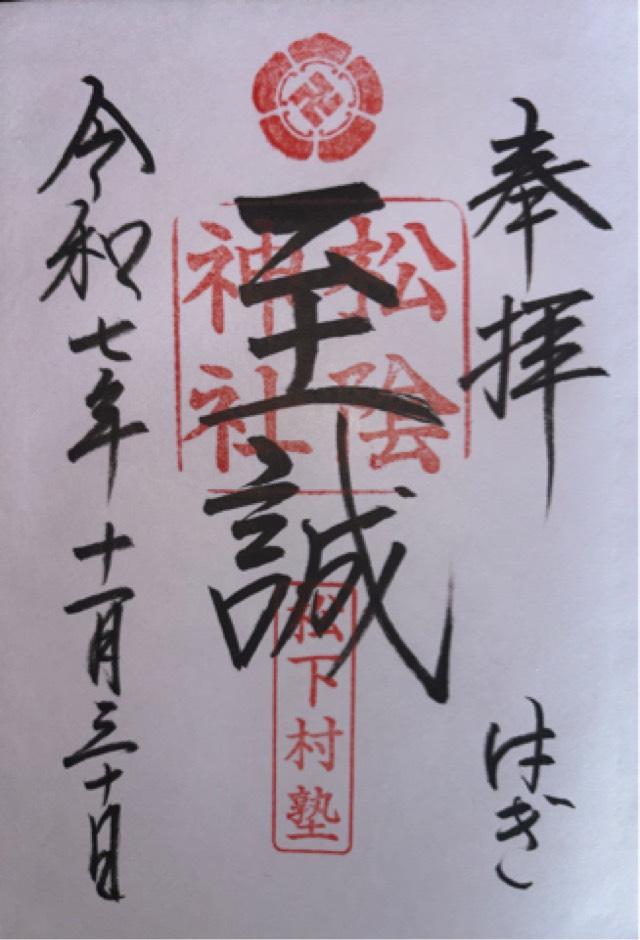 奉拝
はぎ
松陰
神社
至誠
松下村塾
令和七年十一月三十日